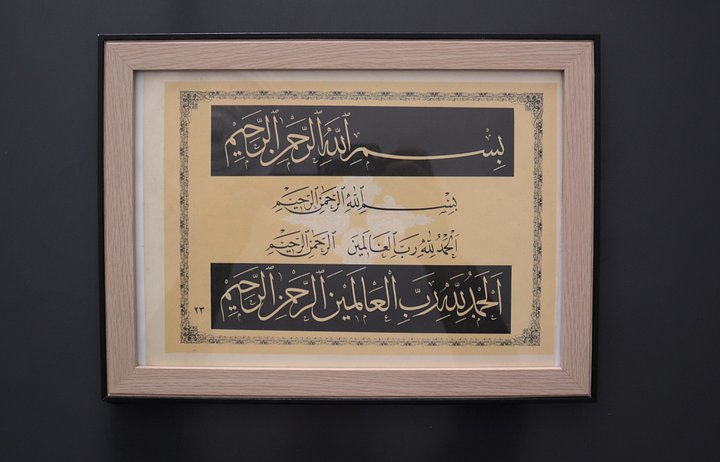 بِسْمِ اللَّهِ الرَّحْمَنِ الرَّحِيمِ
بِسْمِ اللَّهِ الرَّحْمَنِ الرَّحِيمِ
الْحَمْدُ لِلَّهِ رَبِّ الْعَالَمِينَ الرَّحْمَنِ الرَّحِيمِ
الْحَمْدُ لِلَّهِ رَبِّ الْعَالَمِينَ الرَّحْمَنِ الرَّحِيمِ
٢٣